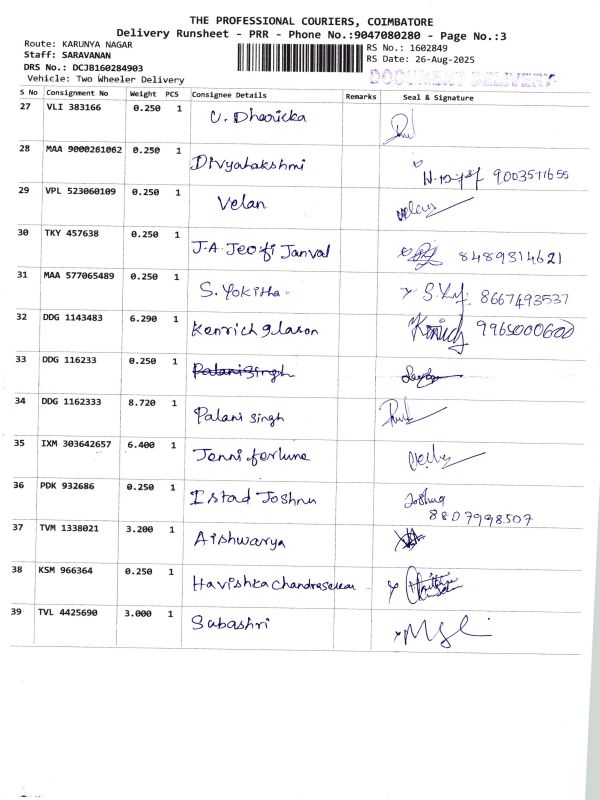 THE PROFESSIONAL COURIERS, COIMBATORE
Delivery Runsheet - PRR - Phone No.:9047080280 - Page No.:3
Route: KARUNYA NAGAR RS No.: 1602849
Staff: SARAVANAN RS Date: 26-Aug-2025
DRS No.: DCJB160284903
Vehicle: Two Wheeler Delivery DOCUMENT DELIVERY
S No Consignment No Weight PCS Consignee Details Remarks Seal & Signature
27 VLI 383166 0.250 1 U. Dharicka
28 MAA 9000261062 0.250 1 Divyalakshmi 9003511655
29 VPL 523060109 0.250 1 Velan Velan
30 TKY 457638 0.250 1 J.A. Jeofi Janval 8489314621
31 MAA 577065489 0.250 1 S. Yokitha. 8667493537
32 DDG 1143483 6.290 1 Kenrich glason 9965000600
33 DDG 116233 0.250 1 Palani Singh
34 DDG 1162333 8.720 1 Palani Singh
35 IXM 303642657 6.400 1 Jenni ferlune
36 PDK 932686 0.250 1 Istad Joshnu Joshua
8807998507
37 TVM 1338021 3.200 1 Aishwarya
38 KSM 966364 0.250 1 Havishka Chandrasekar
39 TVL 4425690 3.000 1 Sabashri